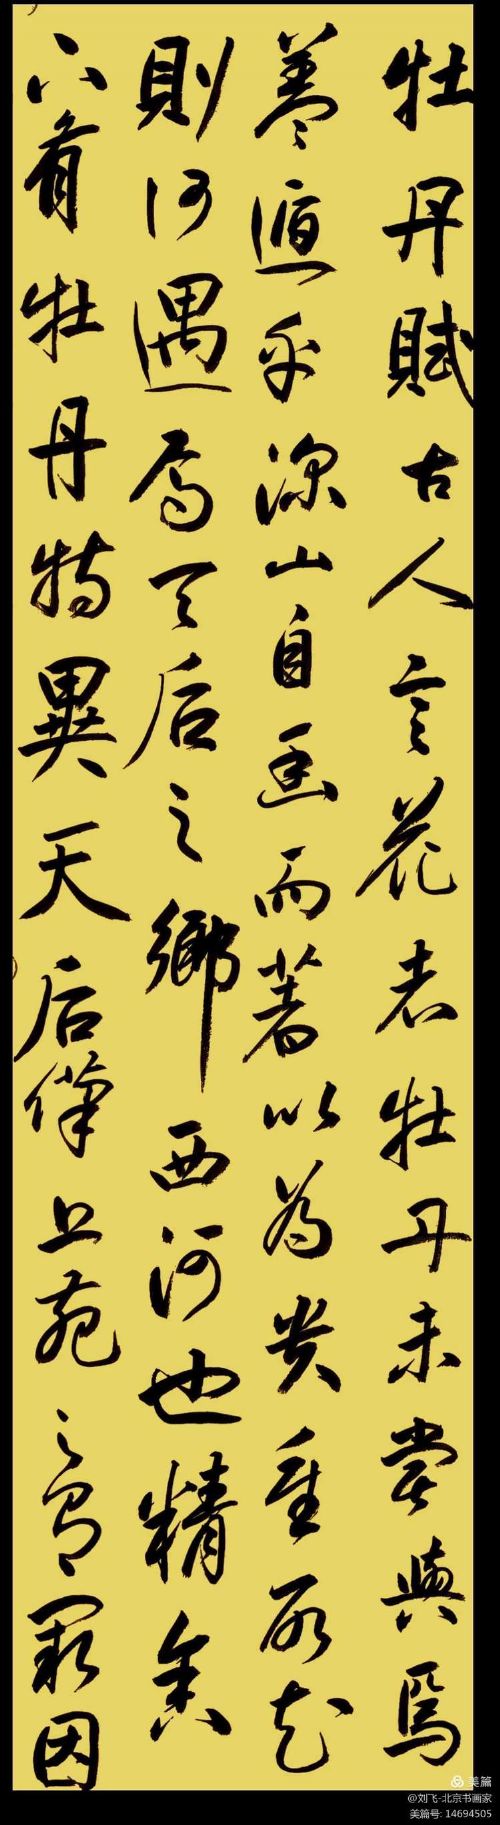 牡丹賦古人言花者牡丹未嘗與焉
蓋遁乎深山自幽而著以為貴重所花
則何遇焉天后之鄉西河也精舍
下有牡丹特異天后嘆上苑之有闕因
美篇
@刘飞-北京书画家
美篇号: 14694505